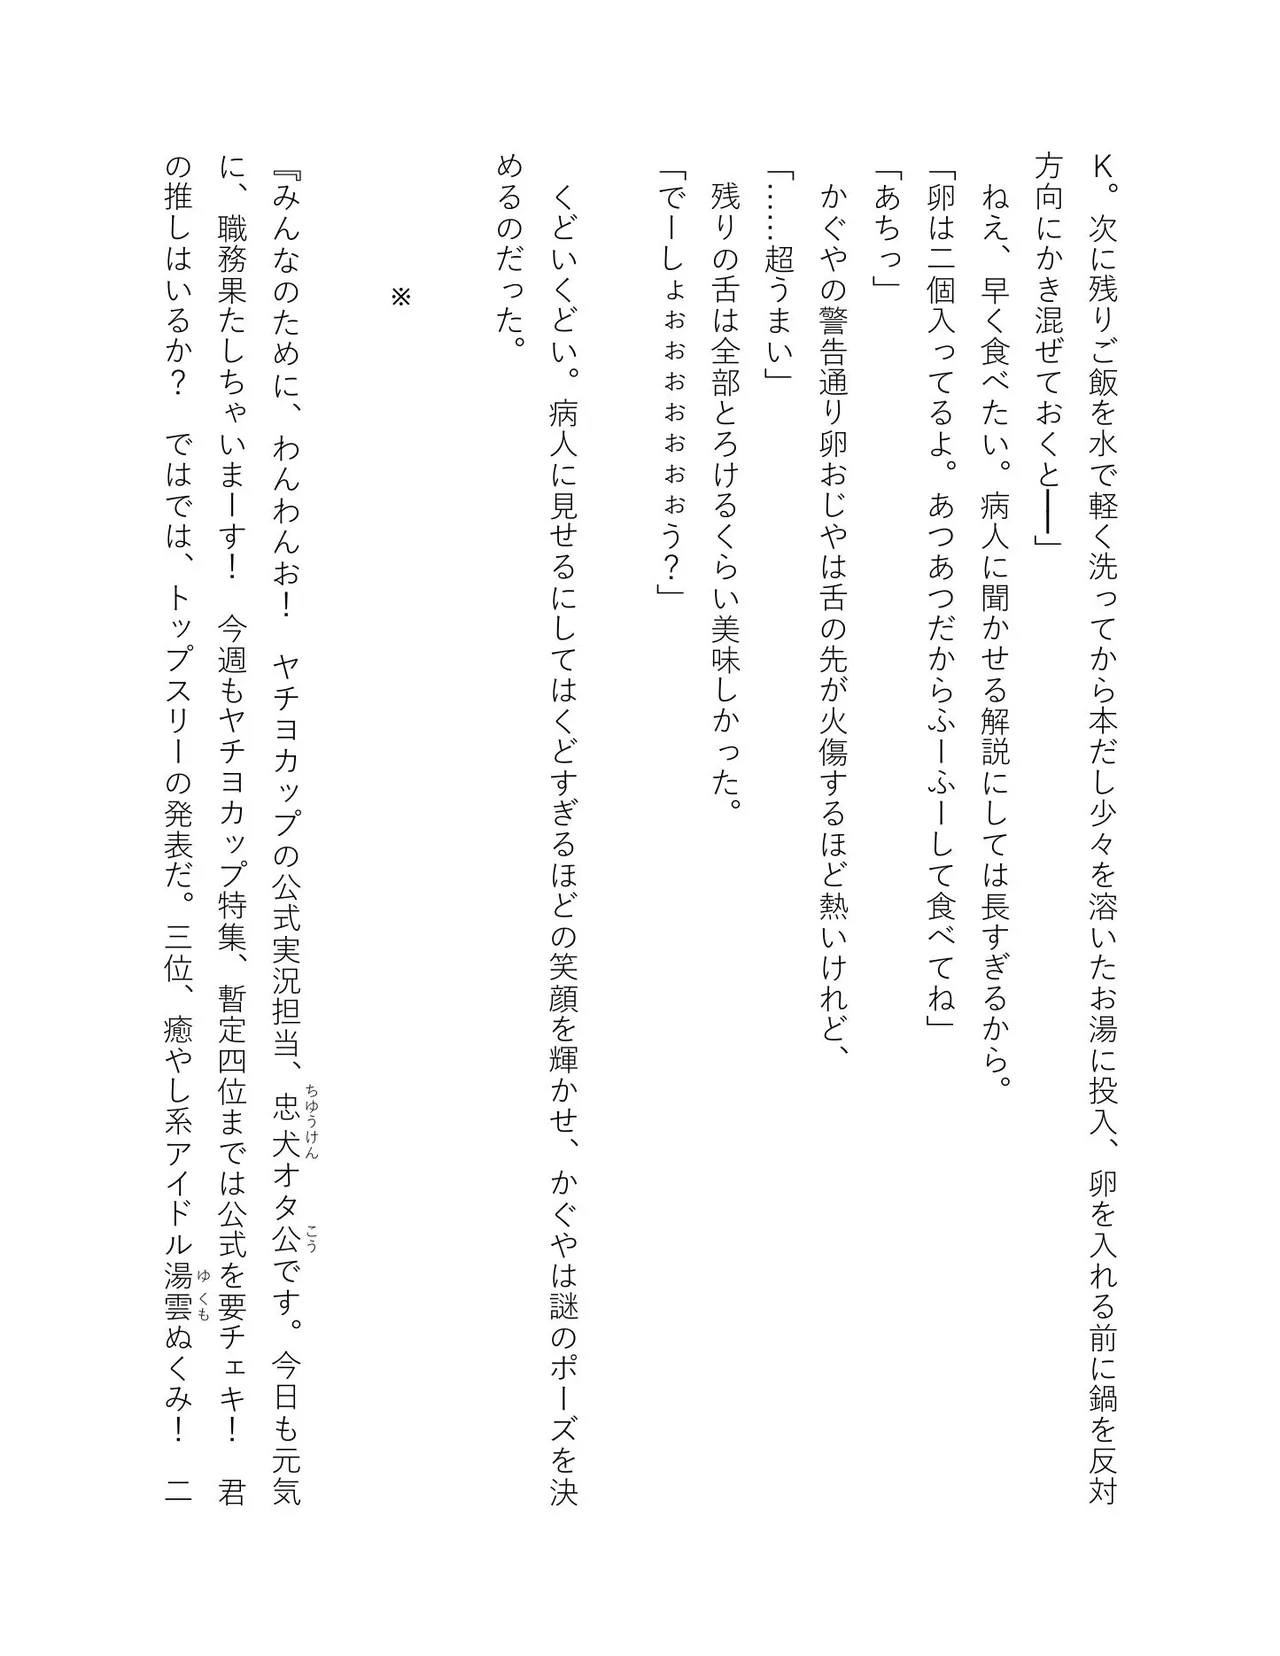 K。次に残りご飯を水で軽く洗ってから本だし少々を溶いたお湯に投入、卵を入れる前に鍋を反対
方向にかき混ぜておくと――」
　ねえ、早く食べたい。病人に聞かせる解説にしては長すぎるから。
「卵は二個入ってるよ。あつあつだからふーふーして食べてね」
「あちっ」
　かぐやの警告通り卵おじやは舌の先が火傷するほど熱いけれど、
「……超うまい」
　残りの舌は全部とろけるくらい美味しかった。
「でーしょぉぉぉぉぉぉぉう？」
　くどいくどい。病人に見せるにしてはくどすぎるほどの笑顔を輝かせ、かぐやは謎のポーズを決
めるのだった。
※
『みんなのために、わんわんお！　ヤチヨカップの公式実況担当、忠犬オタ公です。今日も元気
ちゅうけん　こう
に、職務果たしちゃいまーす！　今週もヤチヨカップ特集、暫定四位までは公式を要チェキ！　君
の推しはいるか？　ではでは、トップスリーの発表だ。三位、癒やし系アイドル湯雲ぬくみ！　二
ゆくも